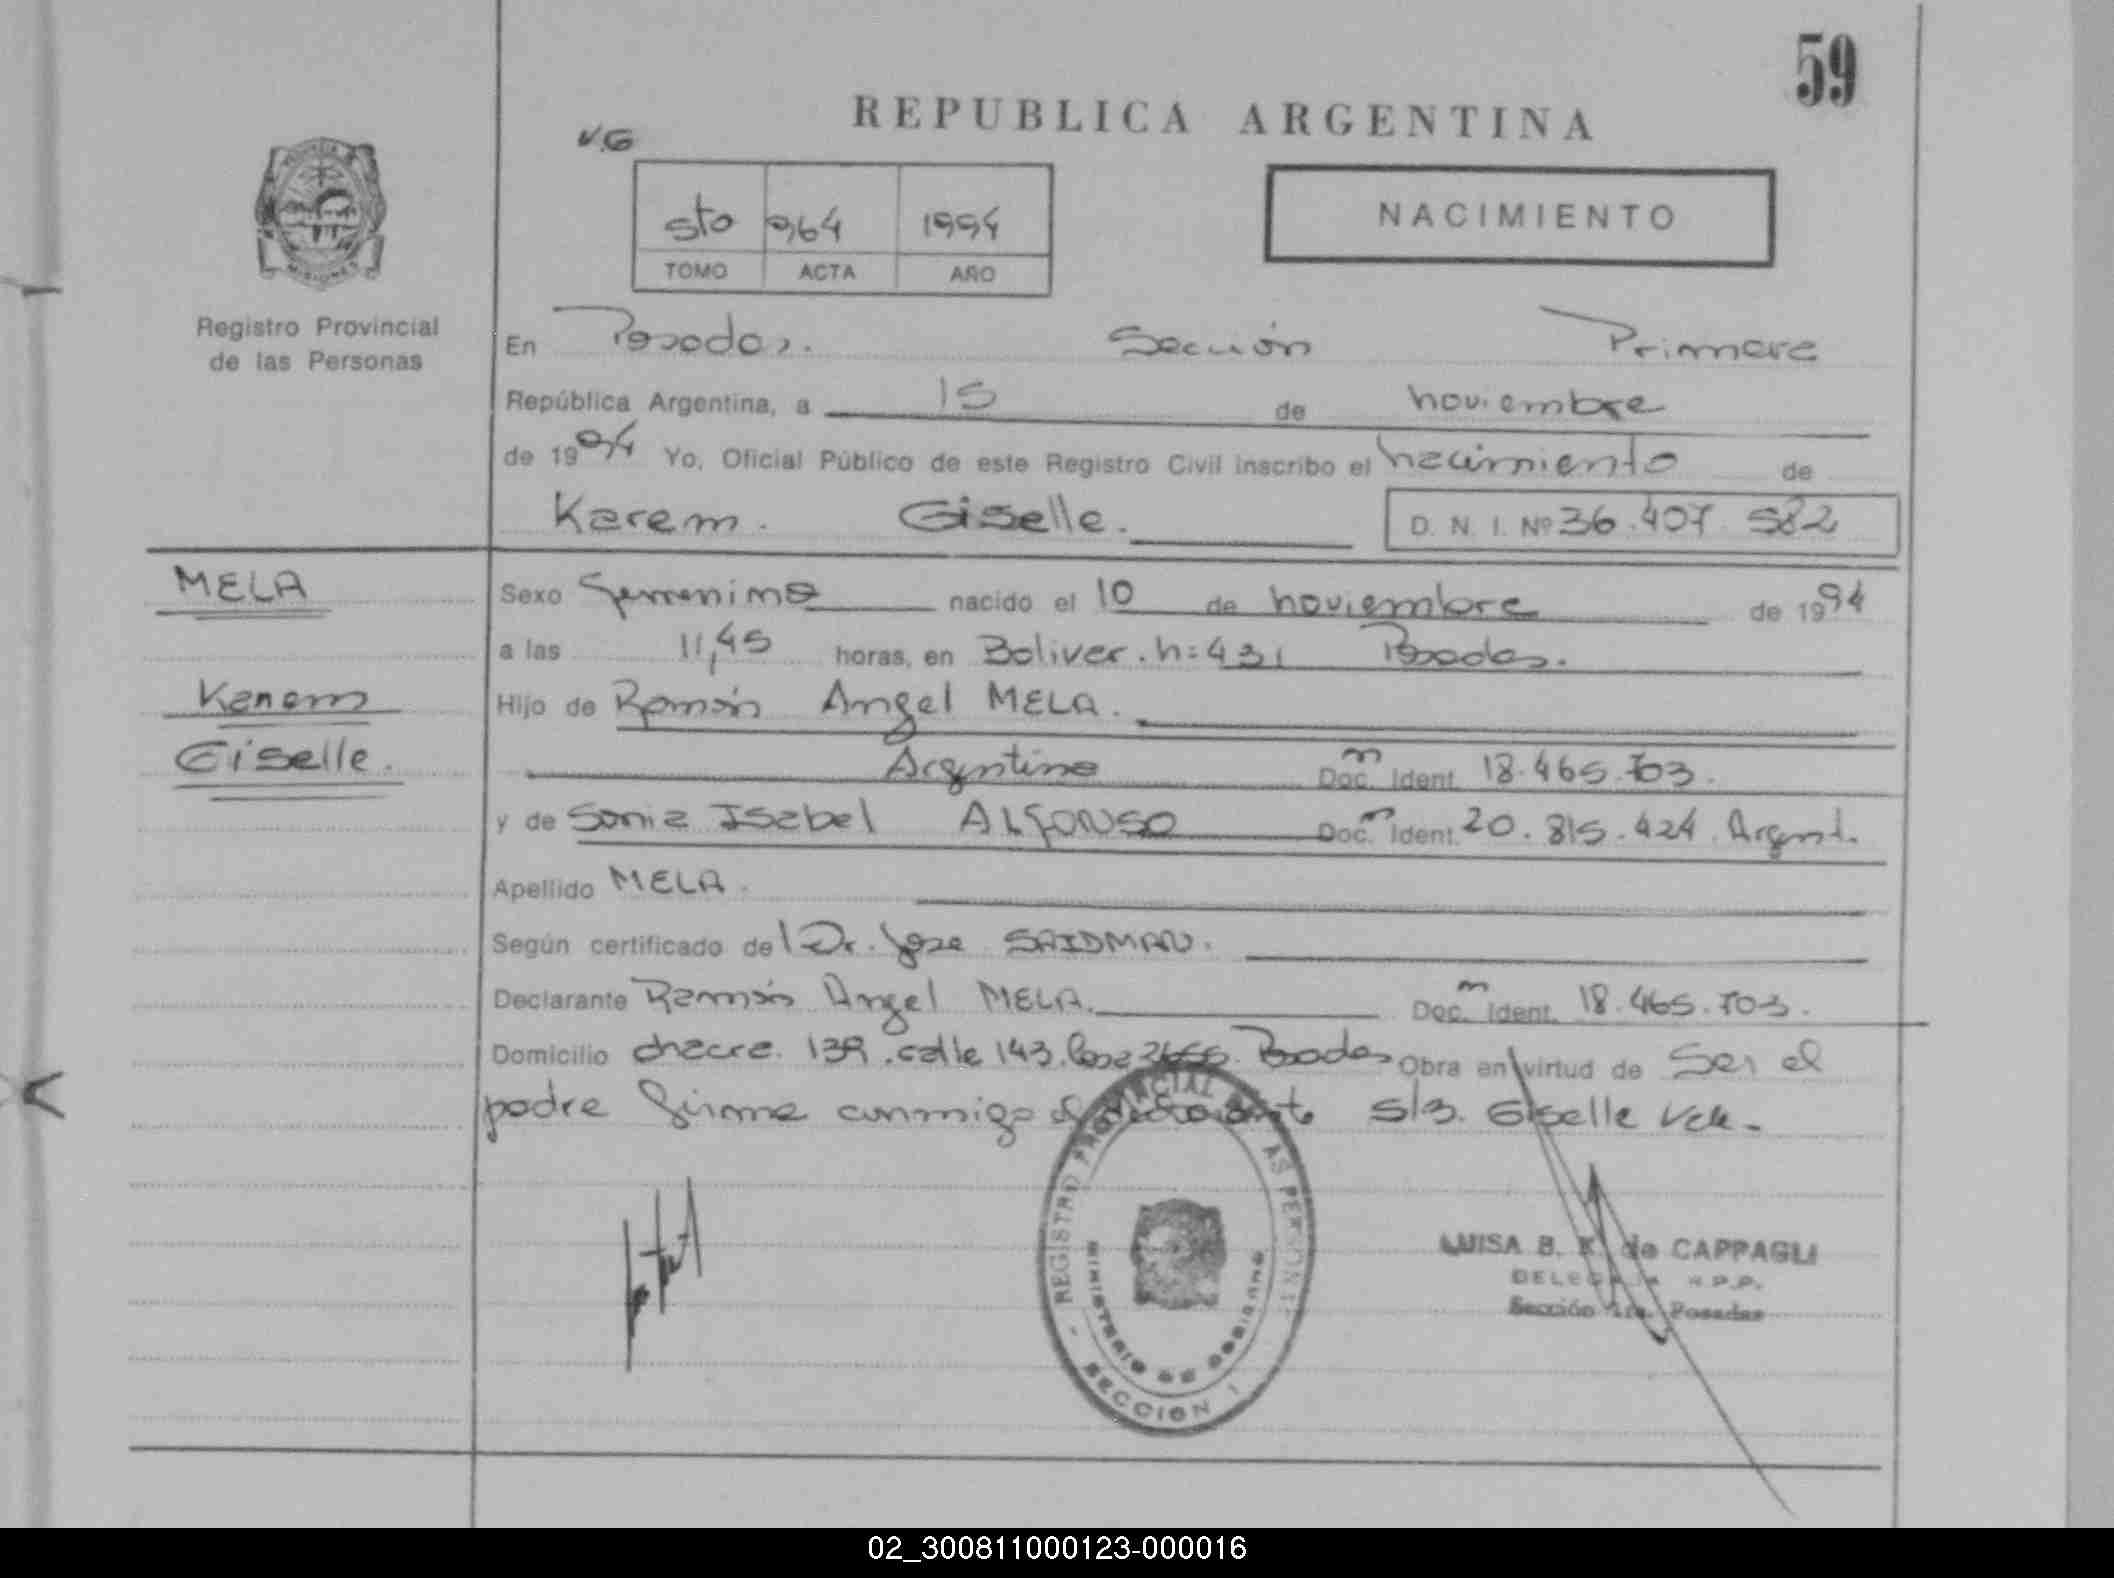 59
REPUBLICA ARGENTINA
V.G
5to 964 1994
TOMO ACTA AÑO
NACIMIENTO
PROVINCIA DE
MISIONES
Registro Provincial
de las Personas
En Posadas. Sección Primera
República Argentina, a 15 de noviembre
de 1994 Yo, Oficial Público de este Registro Civil inscribo el nacimiento de
Karem. Giselle. D. N. I. Nº 36.407.582
MELA
Karem
Giselle.
Sexo femenino nacido el 10 de noviembre de 1994
a las 11,45 horas, en Bolivar. n: 431 Posadas.
Hijo de Ramón Angel MELA.
Argentino Doc. m Ident. 18.465.703.
y de Sonia Isabel ALFONSO Doc. m Ident. 20.815.424. Argent.
Apellido MELA.
Según certificado del Dr. Jose SAIDMAN.
Declarante Ramón Angel MELA. Doc. m Ident. 18.465.703.
Domicilio chacra. 139. calle 143. Posadas Obra en virtud de Ser el
padre firma conmigo el declarante S/R. Giselle Vale.
REGISTRO PROVINCIAL DE LAS PERSONAS
MINISTERIO DE GOBIERNO
SECCION 1
LUISA B. K. de CAPPAGLI
DELEGADA R.P.P.
Sección 1ra. Posadas
02_300811000123-000016